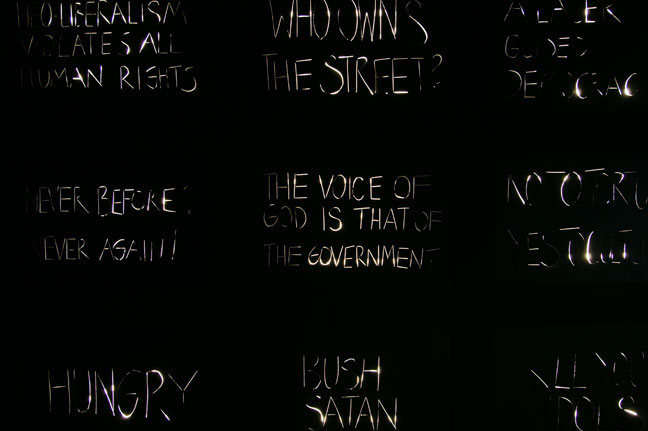 NEO-LIBERALISM
VIOLATES ALL
HUMAN RIGHTS
WHO OWNS
THE STREET?
A LASER
GUIDED
DEMOCRAC
NEVER BEFORE?
NEVER AGAIN!
THE VOICE OF
GOD IS THAT OF
THE GOVERNMENT
NO TO
YES TO
HUNGRY
BUSH
SATAN
ALL YOU